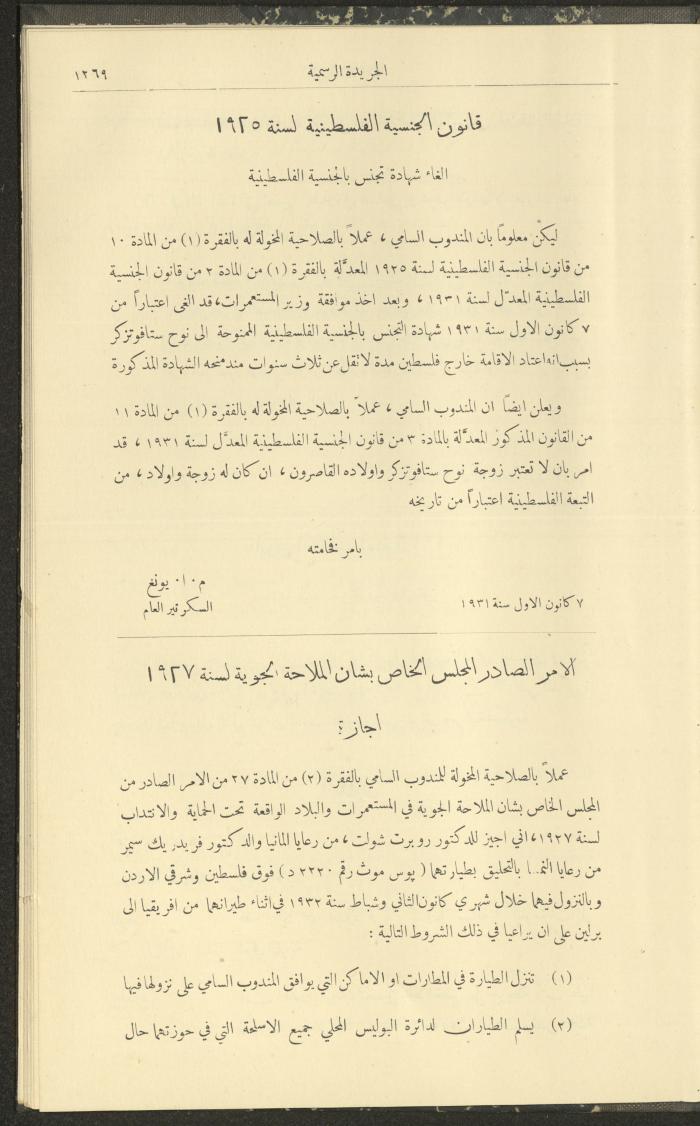 الجريدة الرسمية
١٢٦٩
قانون الجنسية الفلسطينية لسنة ١٩٢٥
الغاء شهادة تجنس بالجنسية الفلسطينية
ليكن معلوماً بان المندوب السامي ، عملاً بالصلاحية المخولة له بالفقرة (١) من المادة ١٠
من قانون الجنسية الفلسطينية لسنة ١٩٢٥ المعدَّلة بالفقرة (١) من المادة ٢ من قانون الجنسية
الفلسطينية المعدّل لسنة ١٩٣١ ، وبعد اخذ موافقة وزير المستعمرات، قد الغى اعتباراً من
٧ كانون الاول سنة ١٩٣١ شهادة التجنس بالجنسية الفلسطينية الممنوحة الى نوح ستافوتزكر
بسبب انه اعتاد الاقامة خارج فلسطين مدة لا تقل عن ثلاث سنوات منذ منحه الشهادة المذكورة
ويعلن ايضاً ان المندوب السامي ، عملاً بالصلاحية المخولة له بالفقرة (١) من المادة ١١
من القانون المذكور المعدَّلة بالمادة ٣ من قانون الجنسية الفلسطينية المعدَّل لسنة ١٩٣١ ، قد
امر بان لا تعتبر زوجة نوح ستافوتزكر واولاده القاصرون ، ان كان له زوجة واولاد ، من
التبعة الفلسطينية اعتباراً من تاريخه
بامر فخامته
م . ا . يونغ
٧ كانون الاول سنة ١٩٣١
السكرتير العام
الامر الصادر المجلس الخاص بشان الملاحة الجوية لسنة ١٩٢٧
اجازة
عملاً بالصلاحية المخولة للمندوب السامي بالفقرة (٢) من المادة ٢٧ من الامر الصادر من
المجلس الخاص بشان الملاحة الجوية في المستعمرات والبلاد الواقعة تحت الحماية والانتداب
لسنة ١٩٢٧، اني اجيز للدكتور روبرت شولت ، من رعايا المانيا والدكتور فريدريك سيمر
من رعايا النمسا بالتحليق بطيارتهما ( پوس موث رقم ٢٢٣٠ د ) فوق فلسطين وشرقي الاردن
وبالنزول فيهما خلال شهري كانون الثاني وشباط سنة ١٩٣٢ في اثناء طيرانهما من افريقيا الى
برلين على ان يراعيا في ذلك الشروط التالية :
(١) تنزل الطيارة في المطارات او الاماكن التي يوافق المندوب السامي على نزولها فيها
(٢) يسلم الطياران لدائرة البوليس المحلي جميع الاسلحة التي في حوزتهما حال